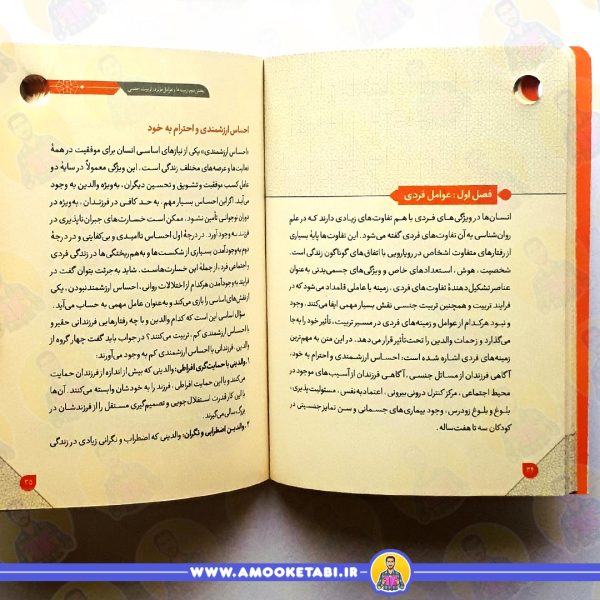 فصل اول: عوامل فردی
انسان‌ها در ویژگی‌های فردی با هم تفاوت‌های زیادی دارند که در علم
روان‌شناسی به آن تفاوت‌های فردی گفته می‌شود. این تفاوت‌ها پایهٔ بسیاری
از رفتارهای متفاوت اشخاص در رویارویی با اتفاق‌های گوناگون زندگی است.
شخصیت، هوش، استعدادهای خاص و ویژگی‌های جسمی‌بدنی به‌عنوان
عناصر تشکیل‌دهندهٔ تفاوت‌های فردی، زمینه یا عاملی قلمداد می‌شود که در
فرایند تربیت و همچنین تربیت جنسی نقش بسیار مهمی ایفا می‌کنند. وجود
و نبود هرکدام از عوامل و زمینه‌های فردی در مسیر تربیت، تأثیر خود را به‌جا
می‌گذارد و زحمات والدین را تحت‌تأثیر قرار می‌دهد. در این متن به مهم‌ترین
زمینه‌های فردی اشاره شده است: احساس ارزشمندی و احترام به خود،
آگاهی فرزندان از مسائل جنسی، آگاهی فرزندان از آسیب‌های موجود در
محیط اجتماعی، مرکز کنترل درونی‌بیرونی، اعتمادبه‌نفس، مسئولیت‌پذیری،
بلوغ و بلوغ زودرس، وجود بیماری‌های جسمانی و سن تمایز جنسیتی در
کودکان سه تا هفت‌ساله.
۳۴
بخش دوم: زمینه‌ها و عوامل مؤثر در تربیت جنسی
احساس ارزشمندی و احترام به خود
«احساس ارزشمندی» یکی از نیازهای اساسی انسان برای موفقیت در همهٔ
فعالیت‌ها و عرصه‌های مختلف زندگی است. این ویژگی معمولاً در سایهٔ دو
عامل کسب موفقیت و تشویق و تحسین دیگران، به‌ویژه والدین به وجود
می‌آید. اگر این احساس بسیار مهم، به حد کافی در فرزندان، به‌ویژه در
دوران نوجوانی تأمین نشود، ممکن است خسارت‌های جبران‌ناپذیری در
زندگی فرد به وجود آورد. در درجهٔ اول احساس ناامیدی و بی‌کفایتی و در درجهٔ
دوم به‌وجودآمدن بسیاری از شکست‌ها و به‌هم‌ریختگی‌ها در زندگی فردی
و اجتماعی فرد، از جملهٔ این خسارت‌هاست. شاید به جرئت بتوان گفت در
فرایند به‌وجودآمدن هرکدام از اختلالات روانی، احساس ارزشمند نبودن، یکی
از نقش‌های اساسی را بازی می‌کند و به‌عنوان عامل مهمی به حساب می‌آید.
سؤال اساسی این است که کدام والدین و با چه رفتارهایی فرزندانی حقیر و
با احساس ارزشمندی کم، تربیت می‌کنند؟ در جواب باید گفت چهار گروه از
والدین، فرزندانی با احساس ارزشمندی کم به وجود می‌آورند:
۱. والدینِ با حمایت‌گری افراطی: والدینی که بیش از اندازه از فرزندان حمایت
می‌کنند و با این حمایت افراطی، فرزند را به خودشان وابسته می‌کنند. آن‌ها
با این کار قدرت استقلال‌جویی و تصمیم‌گیری مستقل را از فرزندشان در
بزرگ‌سالی می‌گیرند.
۲. والدین اضطرابی و نگران: والدینی که اضطراب و نگرانی زیادی در زندگی
۳۵
WWW.AMOOKETABI.IR